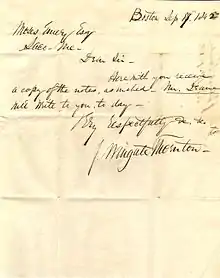 Boston Sep 19.
Moses Emery Esq
Saco - Me.
Dear Sir -
Here with you receive
a copy of the notes, as mailed - Mr. Deane
will write to you, to day -
Very respectfully &c. &c.
J. Wingate Thornton